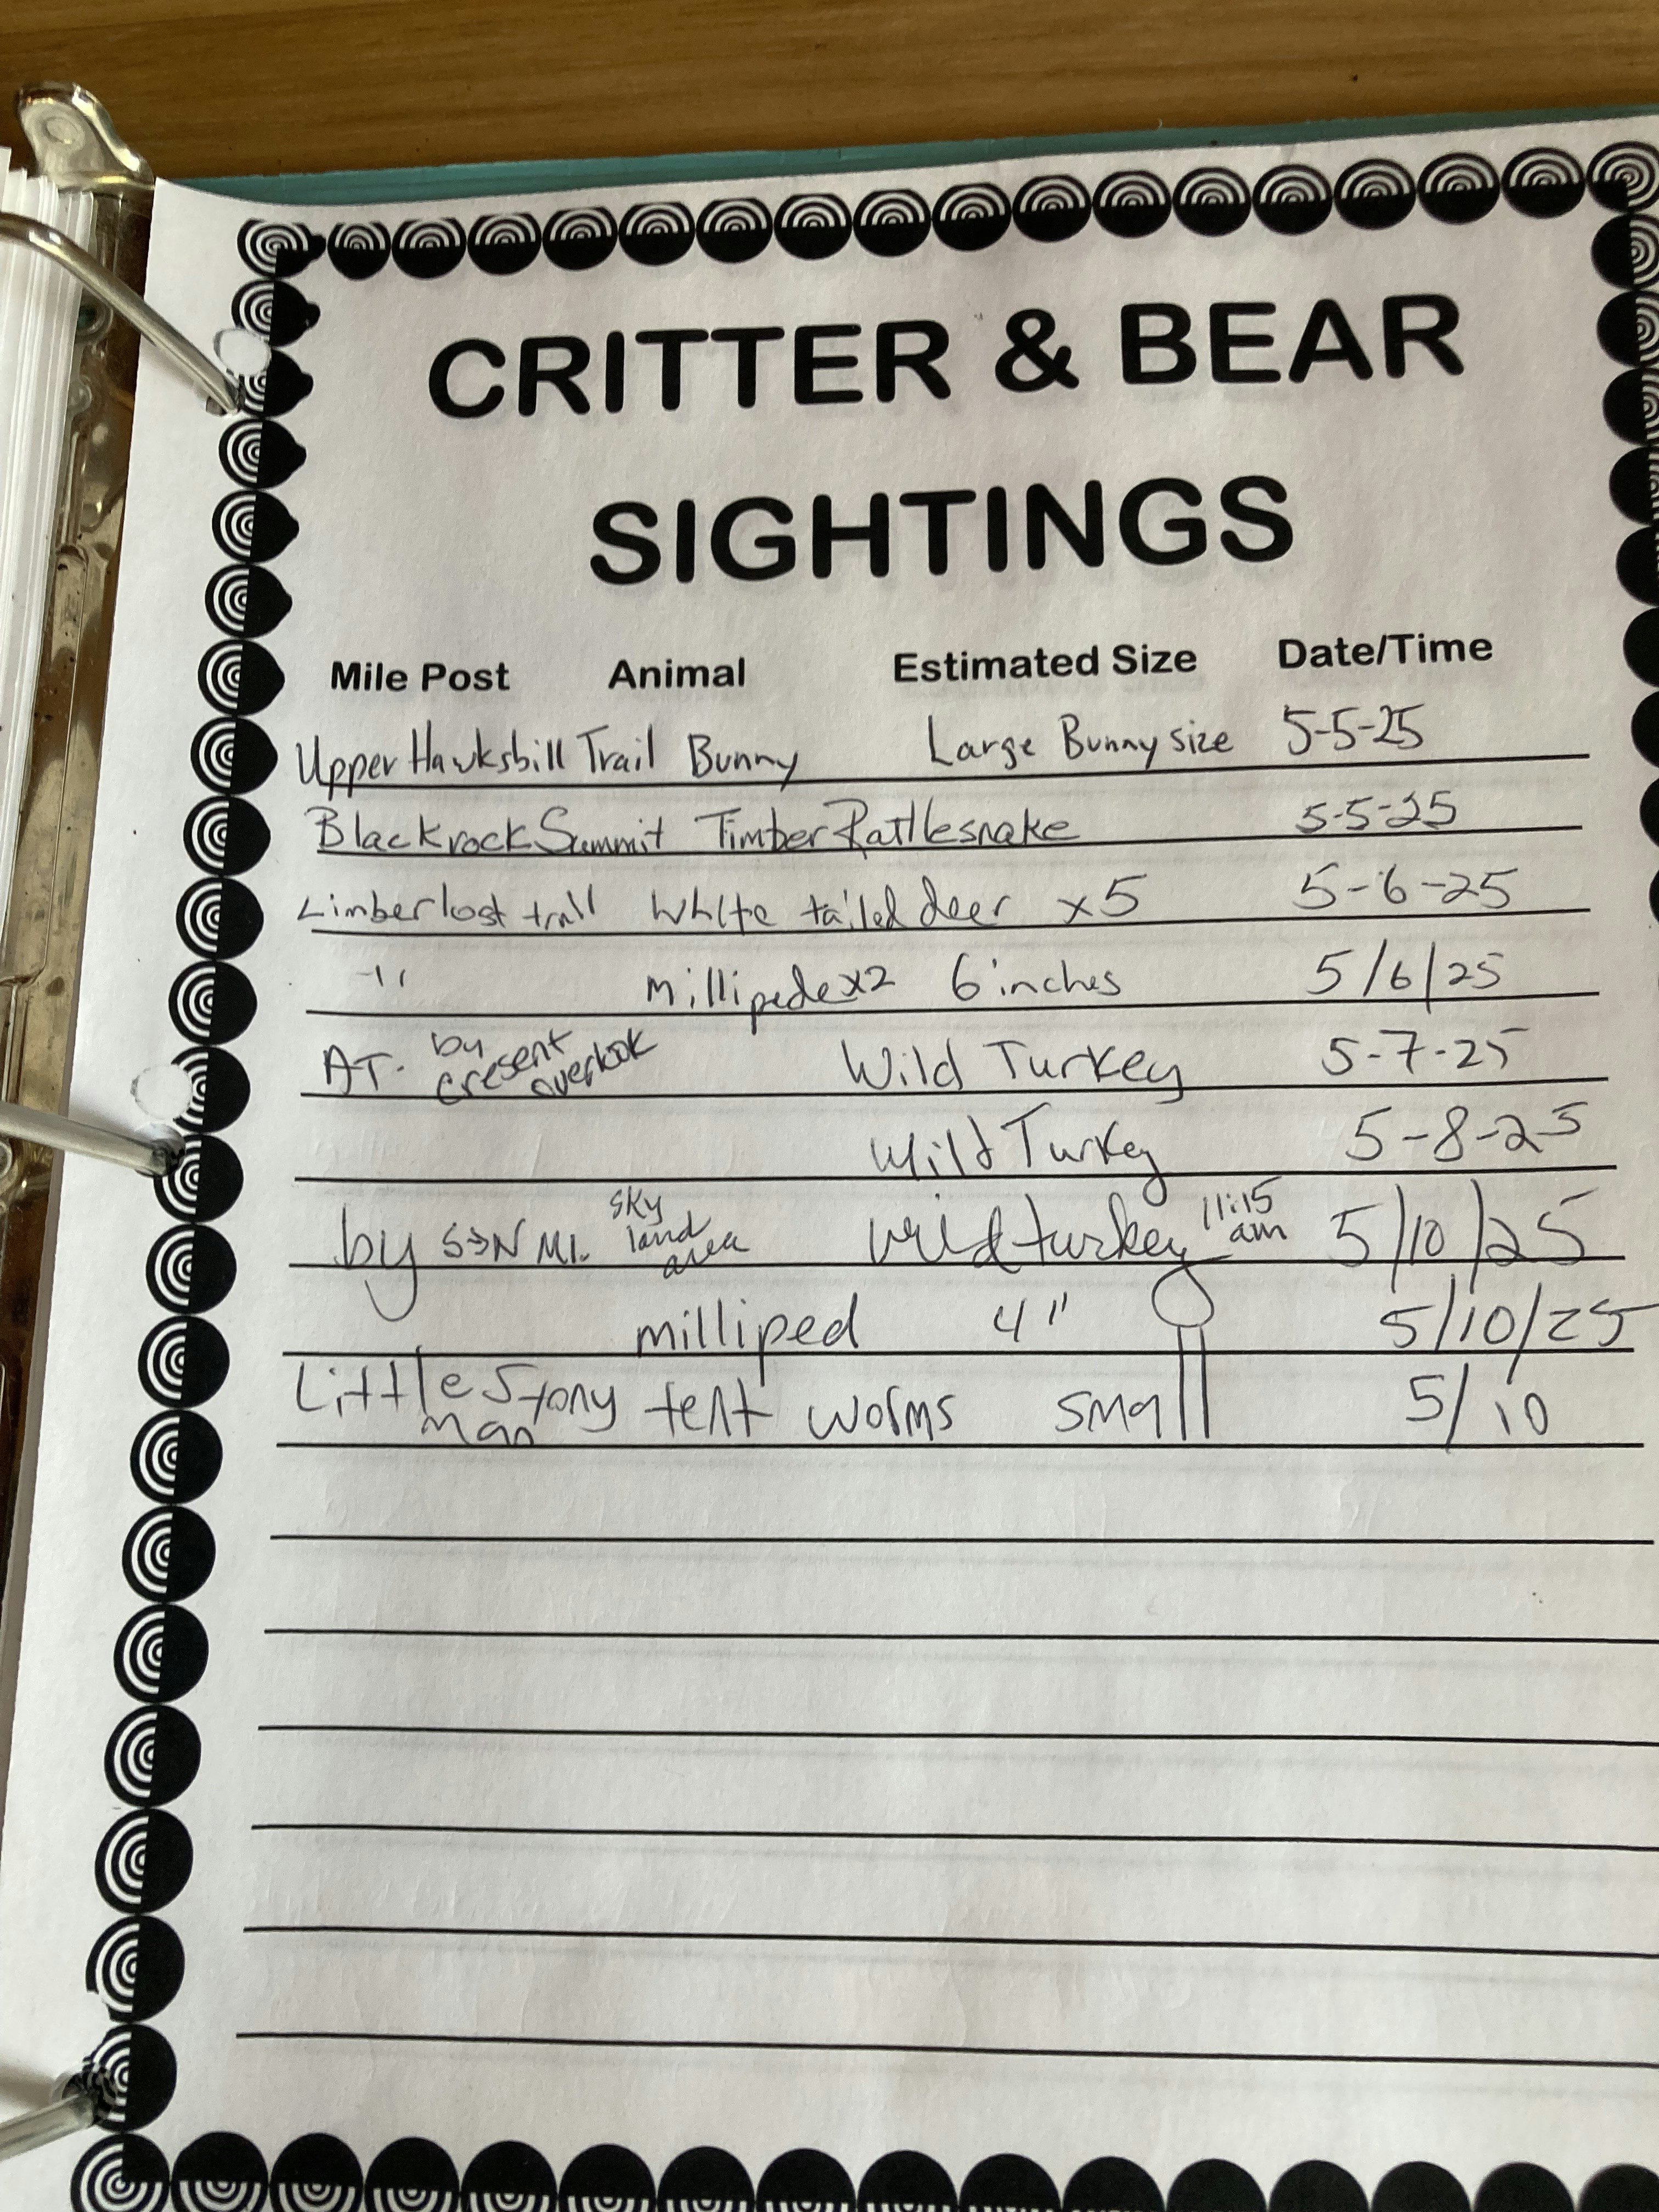 CRITTER & BEAR
SIGHTINGS
Mile Post Animal Estimated Size Date/Time
Upper Hawksbill Trail Bunny Large Bunny size 5-5-25
Blackrock Summit Timber Rattlesnake 5-5-25
Limberlost trail White tailed deer x5 5-6-25
-11 Millipede x2 6 inches 5/6/25
AT. by cresent overlook Wild Turkey 5-7-25
Wild Turkey 5-8-25
by S→N MI. sky land area wild turkey 11:15 am 5/10/25
milliped 4" 5/10/25
Little Stony Man tent worms small 5/10